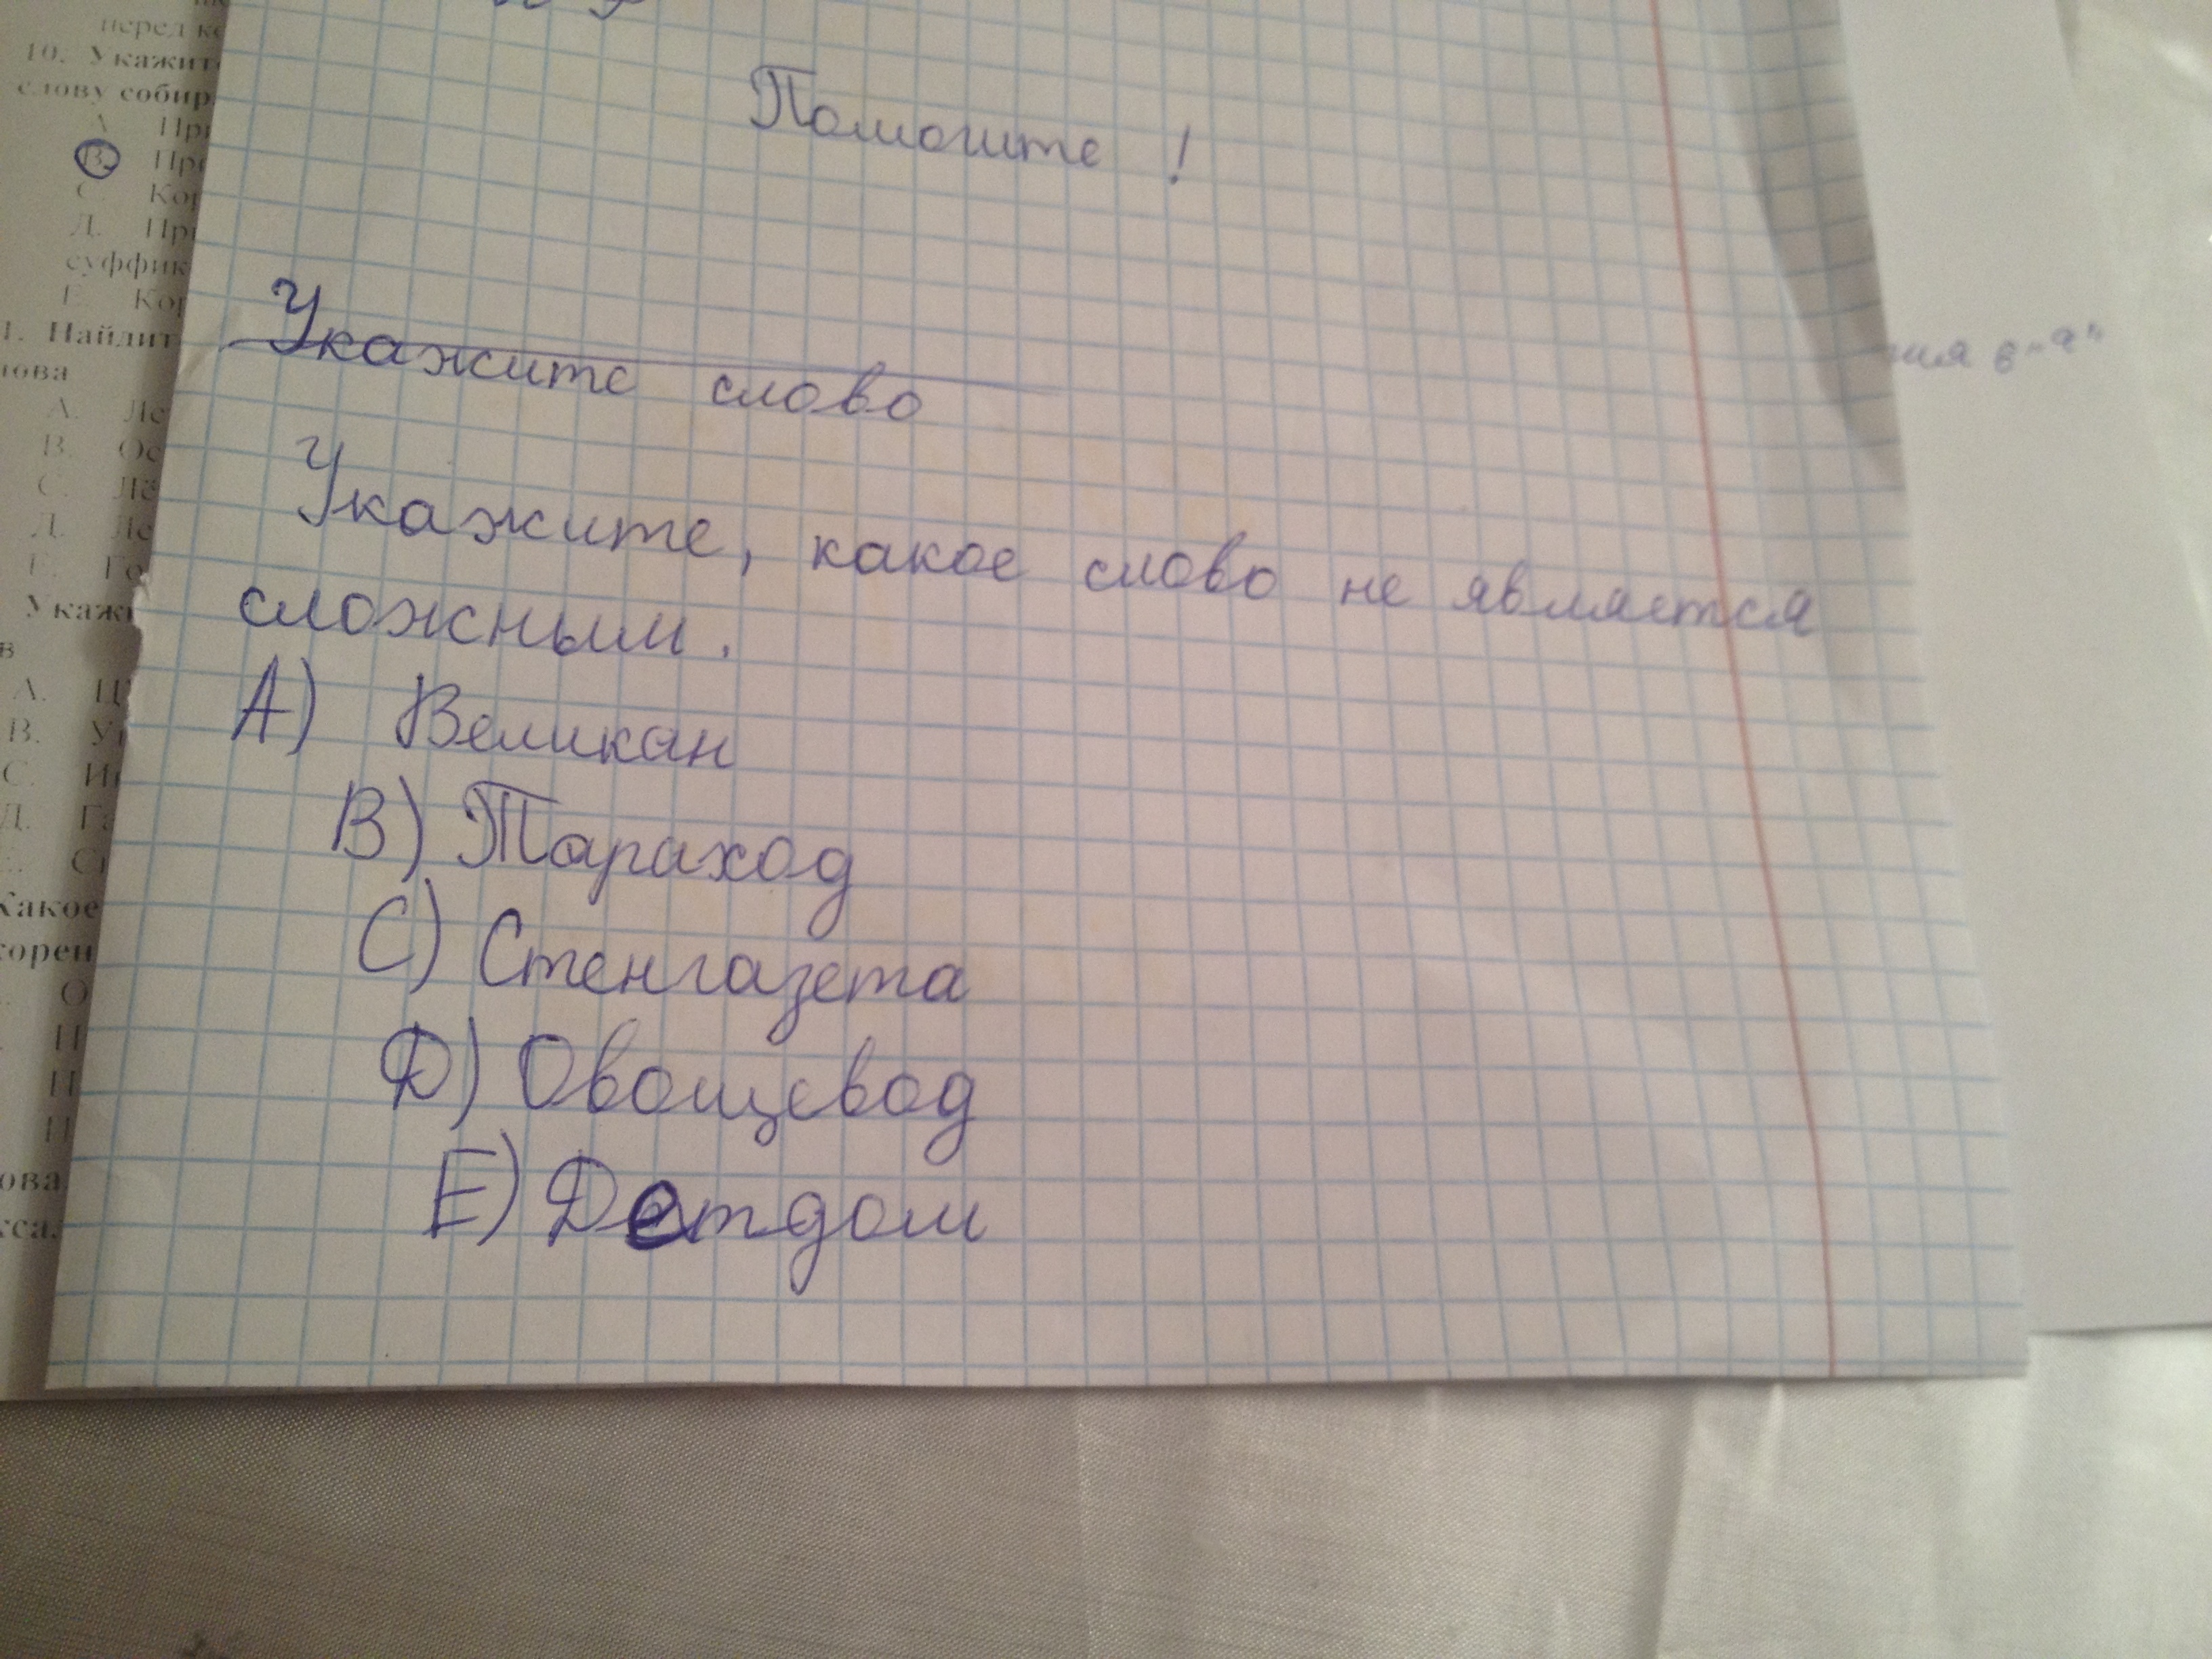 перед
10. Укажит
слову собир
А. Пр
В. Пр
С. Кор
Д. Пр
суффик
Е. Кор
Помогите !
1. Найдит
нова
А. Ле
В. Ос
С. Лё
Д. Ле
Е. Го
Укаж
в
А. Ц
В. У
С. И
Д. Га
Какое
корен
О
Н
Н
Н
ова
кса.
Укажите слово
Укажите, какое слово не является
сложным.
А) Великан
В) Тараход
С) Стенгазета
D) Овощевод
Е) Детдом
ния в "а"